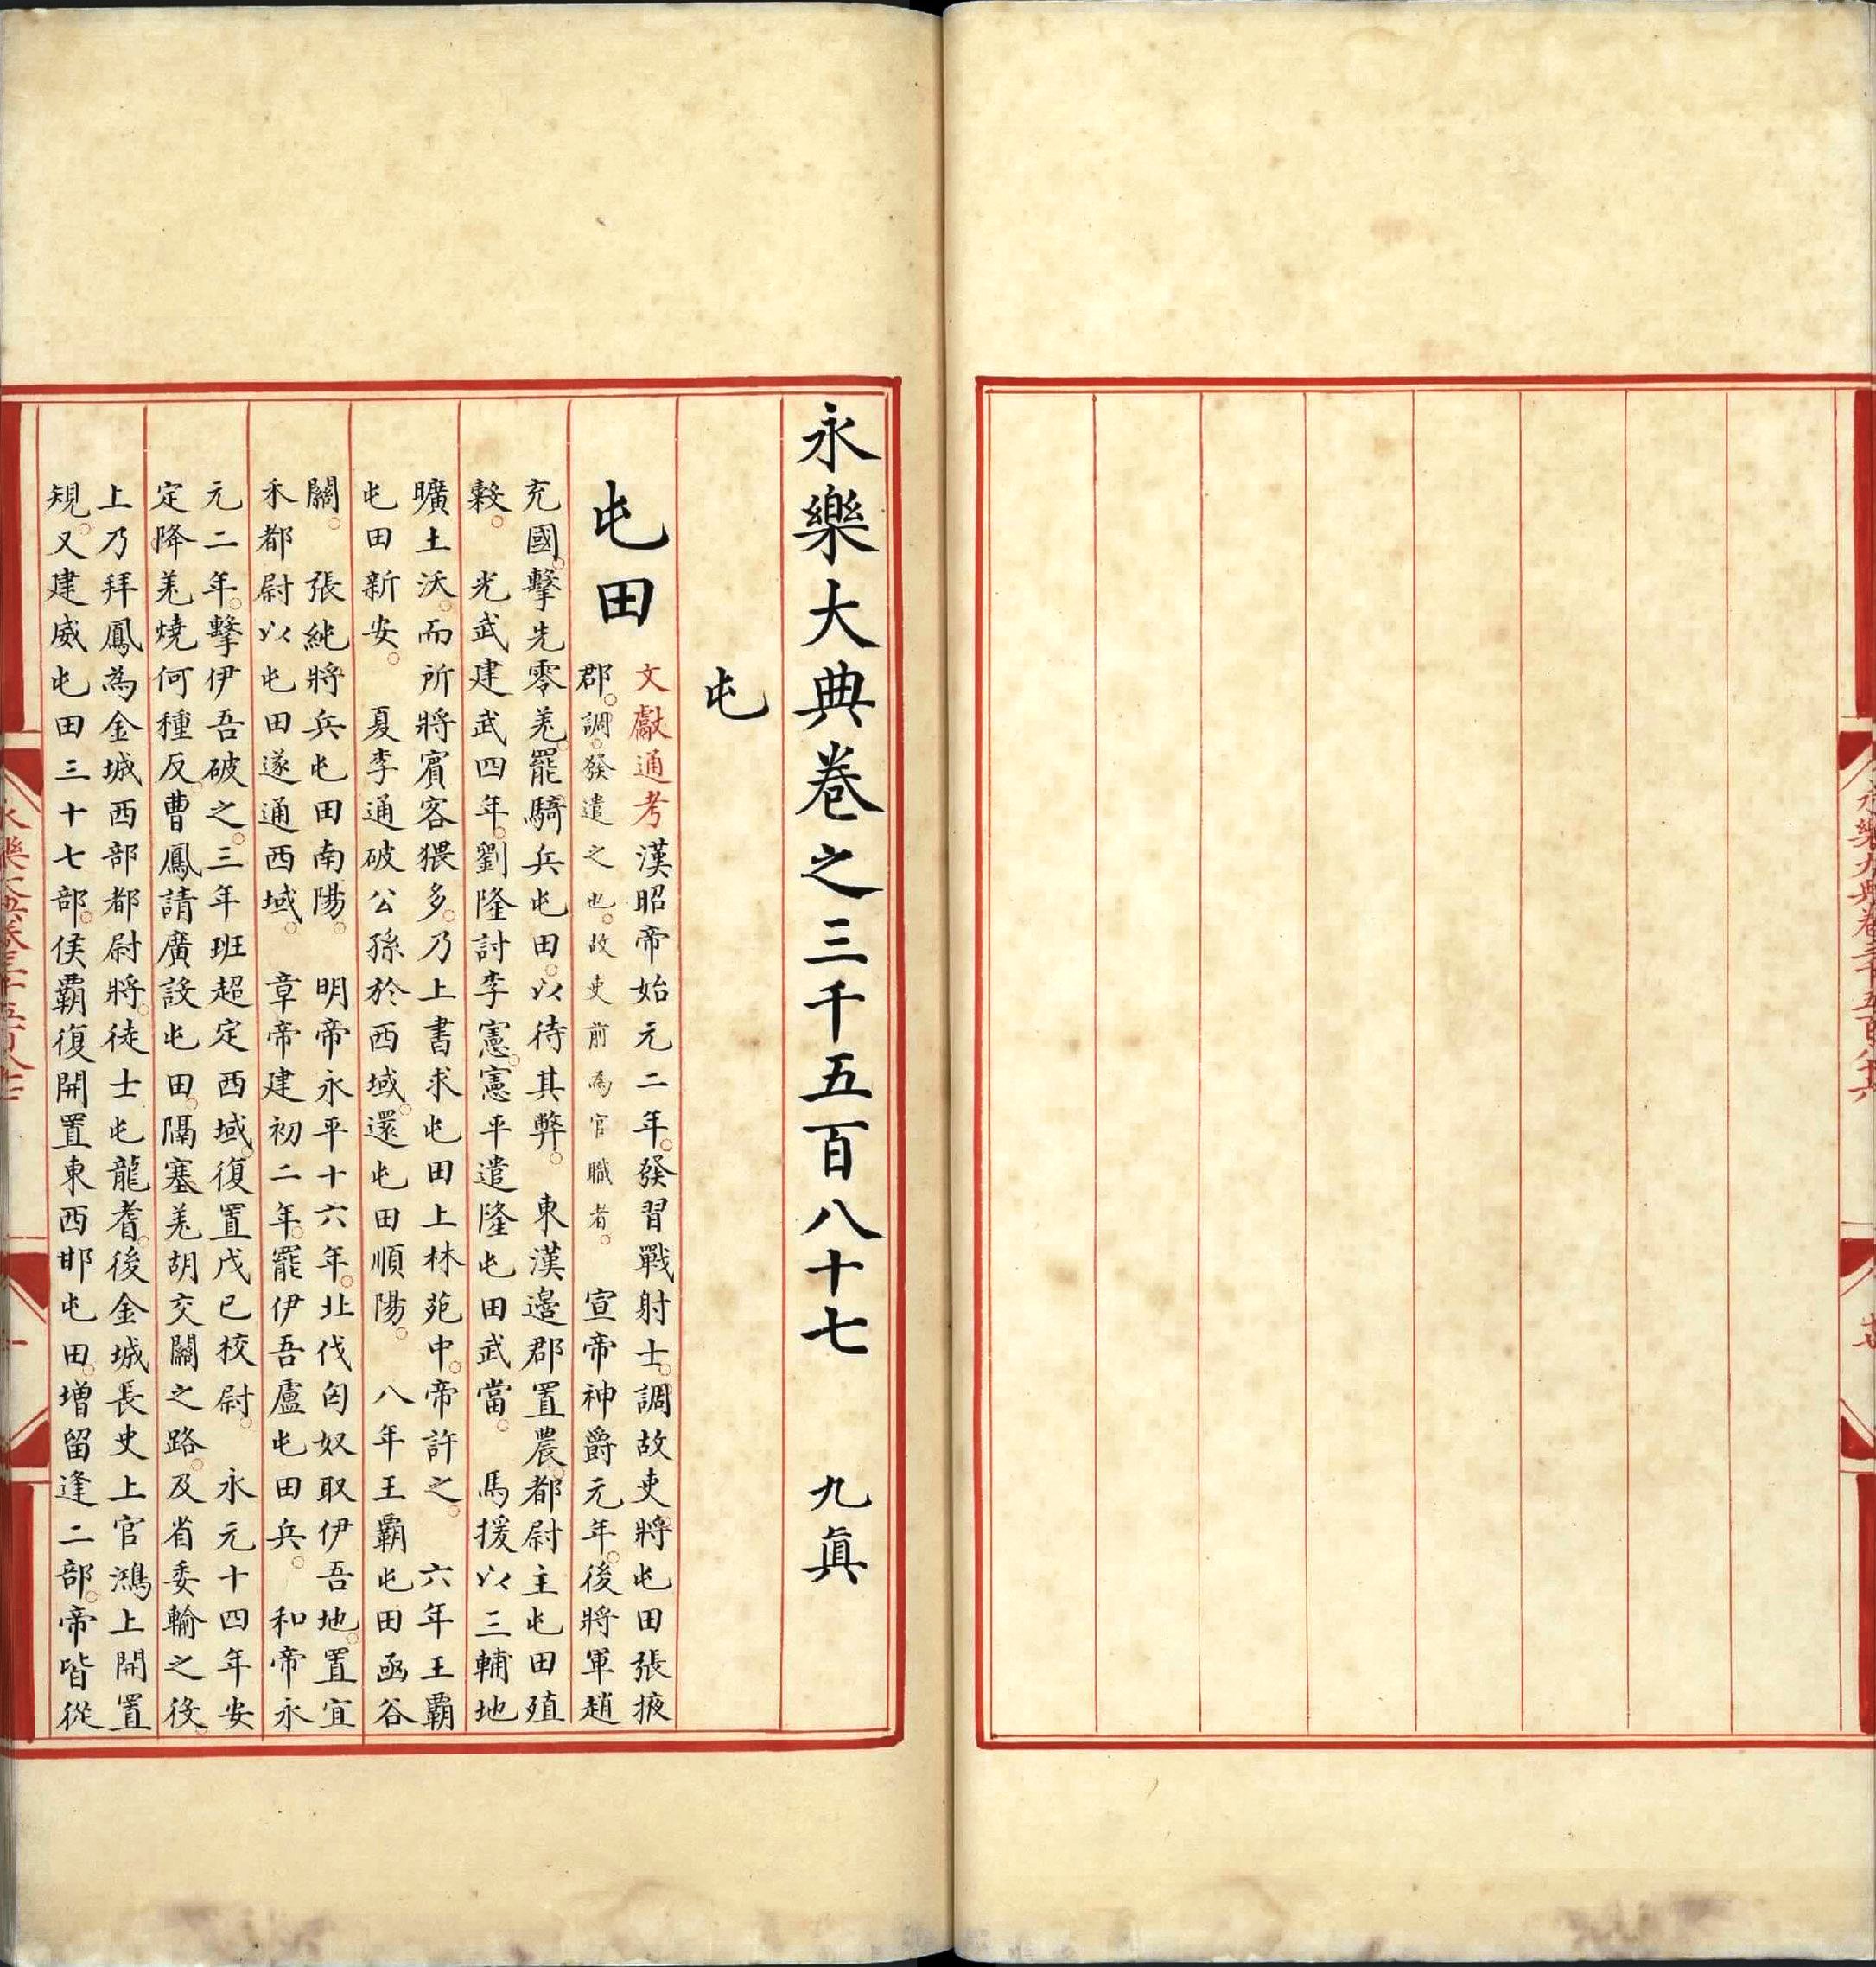 永樂大典卷三千五百八十六
永樂大典卷之三千五百八十七　九眞
屯
屯田
文獻通考漢昭帝始元二年發習戰射士調故吏將屯田張掖
郡調發遣之也故吏前為官職者　宣帝神爵元年後將軍趙
充國擊先零羌罷騎兵屯田以待其弊　東漢邊郡置農都尉主屯田殖
穀　光武建武四年劉隆討李憲憲平遣隆屯田武當　馬援以三輔地
曠土沃而所將賓客猥多乃上書求屯田上林苑中帝許之　六年王霸
屯田新安　夏李通破公孫於西域還屯田順陽　八年王霸屯田函谷
關　張純將兵屯田南陽　明帝永平十六年北伐匈奴取伊吾地置宜
禾都尉以屯田遂通西域　章帝建初二年罷伊吾盧屯田兵　和帝永
元二年擊伊吾破之三年班超定西域復置戊己校尉　永元十四年安
定降羌燒何種反曹鳳請廣設屯田隔塞羌胡交關之路及省委輸之役
上乃拜鳳為金城西部都尉將徒士屯龍耆後金城長史上官鴻上開置
規又建威屯田三十七部侯霸復開置東西邯屯田增留逢二部帝皆從
永樂大典卷三千五百八十七
一